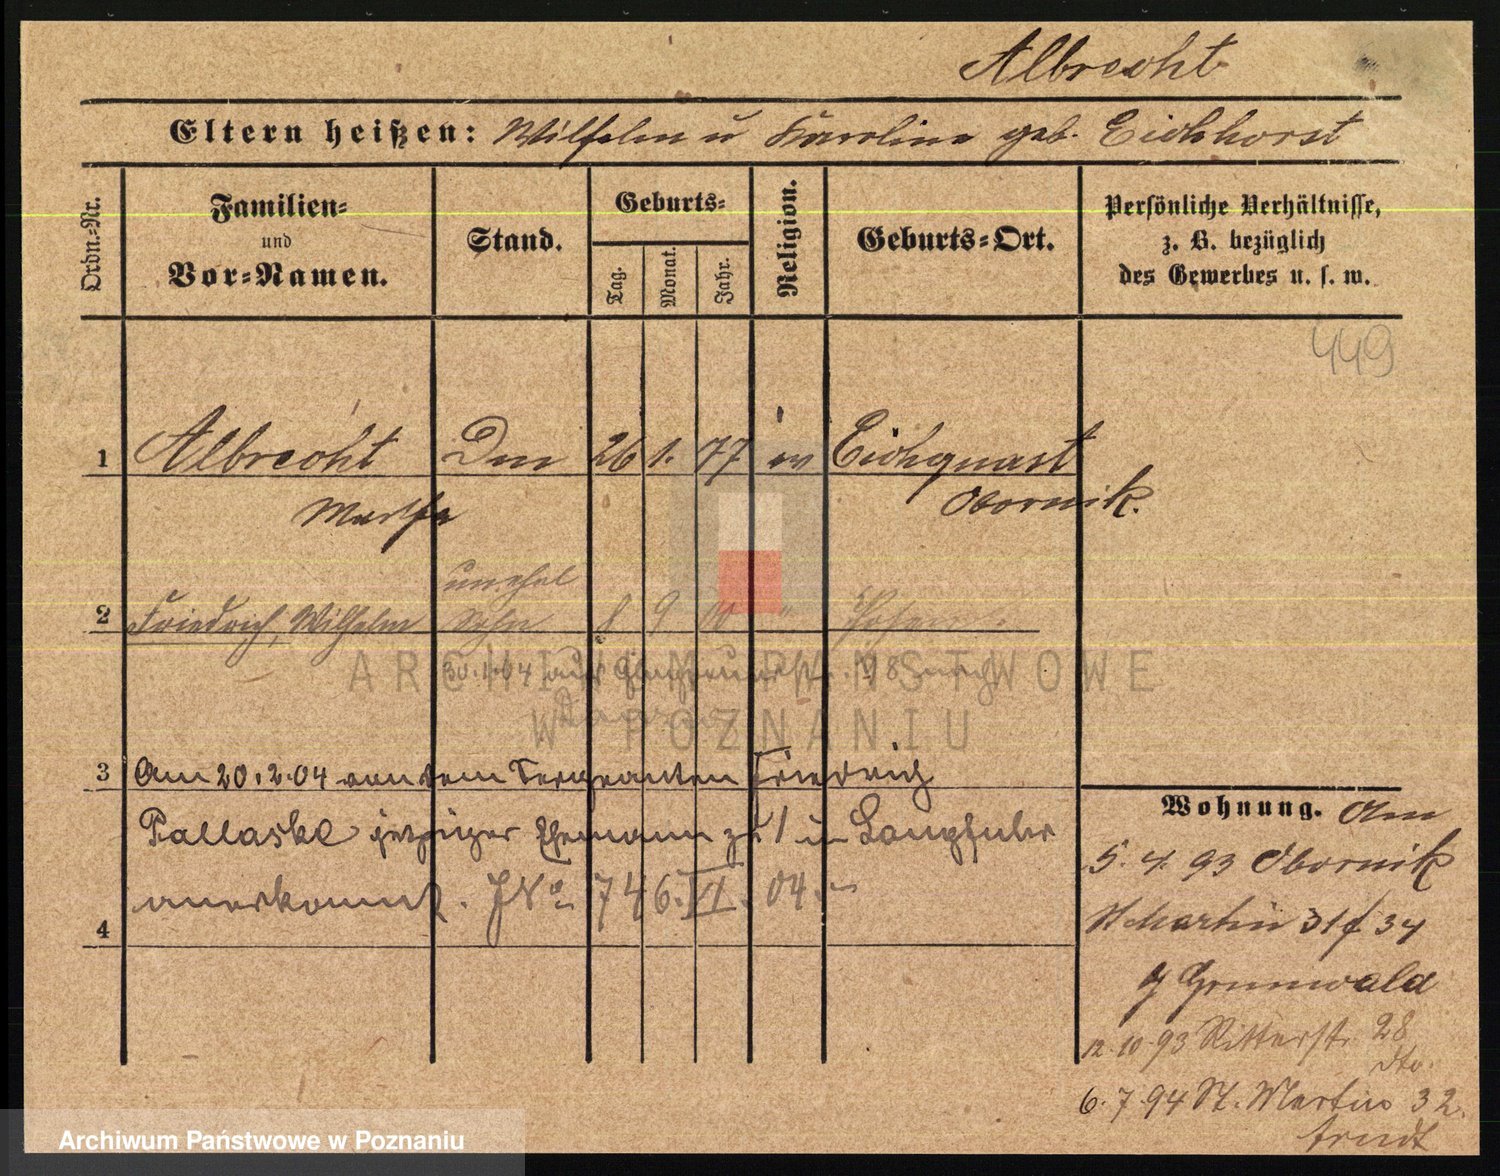 Albrecht
Eltern heißen: Wilhelm u Karoline geb. Eichhorst
Ordn.-Nr.
Familien-
und
Vor-Namen.
Stand.
Geburts-
Tag.
Monat.
Jahr.
Religion.
Geburts-Ort.
Persönliche Verhältnisse,
z. B. bezüglich
des Gewerbes u. s. w.
449
1 Albrecht Dm 26 1. 77 ev Eichquast
Martha Obornik.
unehel
2 Friedrich, Wilhelm Sohn 8 9 00 " Posen
30.1.04 aus 
ARCHIWUM PAŃSTWOWE
W POZNANIU
3 Am 20.2.04 von dem Sergeanten Friedrich
Pallaske jetziger Ehemann zu 1 in Langfuhr
anerkannt. JNo 746.VI.04.
4
Wohnung. Am
5. 4. 93 Obornik
St Martin 31 34
Grunwald
12.10.93 Ritterstr. 28
dto.
6. 7. 94 St. Martin 32.
Arndt
Archiwum Państwowe w Poznaniu